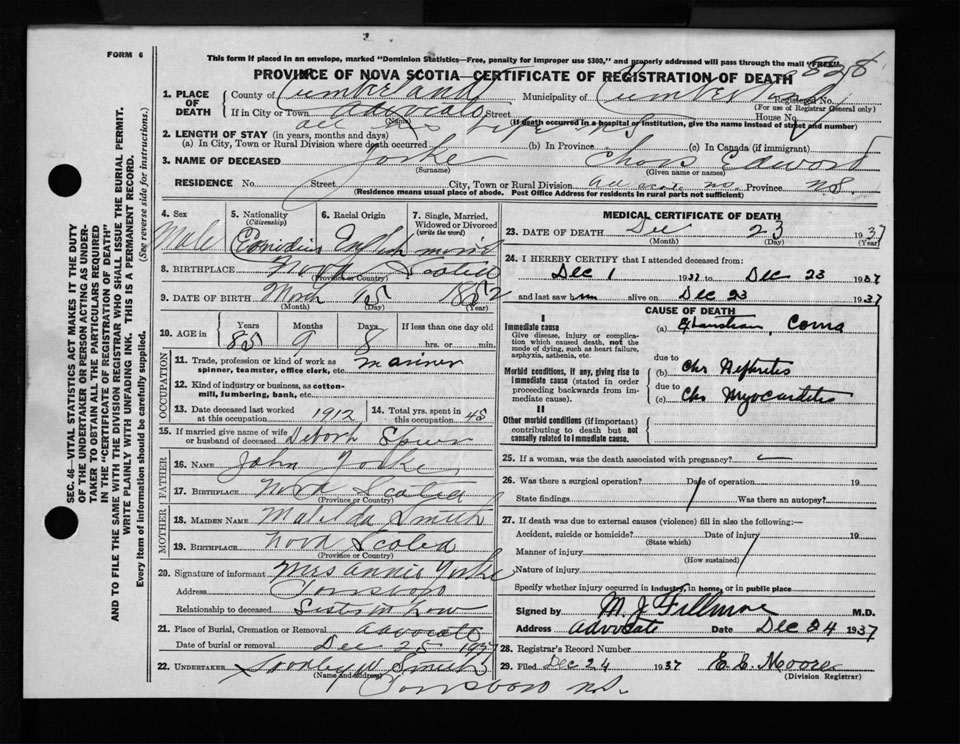 FORM 6
This form if placed in an envelope, marked "Dominion Statistics—Free, penalty for improper use $300," and properly addressed will pass through the mail "FREE"
PROVINCE OF NOVA SCOTIA—CERTIFICATE OF REGISTRATION OF DEATH
1. PLACE OF DEATH County of Cumberland Municipality of Cumberland Registered No.
(For use of Registrar General only)
If in City or Town Advocate Street House No.
(Name) (If death occurred in a hospital of institution, give the name instead of street and number)
2. LENGTH OF STAY (in years, months and days) all his life N S
(a) In City, Town or Rural Division where death occurred (b) In Province (c) In Canada (if immigrant)
3. NAME OF DECEASED Yorke Chas Edward
(Surname) (Given name or names)
RESIDENCE No. Street City, Town or Rural Division Province NS
(Residence means usual place of abode. Post Office Address for residents in rural parts not sufficient)
SEC. 46—VITAL STATISTICS ACT MAKES IT THE DUTY
OF THE UNDERTAKER OR PERSON ACTING AS UNDER-
TAKER TO OBTAIN ALL THE PARTICULARS REQUIRED
IN THE "CERTIFICATE OF REGISTRATION OF DEATH"
AND TO FILE THE SAME WITH THE DIVISION REGISTRAR WHO SHALL ISSUE THE BURIAL PERMIT.
WRITE PLAINLY WITH UNFADING INK. THIS IS A PERMANENT RECORD.
Every item of information should be carefully supplied. (See reverse side for instructions.)
4. Sex Male
5. Nationality (Citizenship) Canadian
6. Racial Origin English
7. Single, Married, Widowed or Divorced (write the word) married
8. BIRTHPLACE Nova Scotia
(Province or Country)
9. DATE OF BIRTH March 15 1852
(Month) (Day) (Year)
10. AGE in Years 85 Months 9 Days 8 If less than one day
hrs. or min.
OCCUPATION
11. Trade, profession or kind of work as spinner, teamster, office clerk, etc. mariner
12. Kind of industry or business, as cotton-mill, lumbering, bank, etc.
13. Date deceased last worked at this occupation 1912
14. Total yrs. spent in this occupation 45
15. If married give name of wife or husband of deceased Deborh Spicer
FATHER
16. NAME John Yorke
17. BIRTHPLACE Nova Scotia
(Province or Country)
MOTHER
18. MAIDEN NAME Matilda Smith
19. BIRTHPLACE Nova Scotia
(Province or Country)
20. Signature of informant Mrs Annie Yorke
Address Parrsboro
Relationship to deceased Sister in Law
21. Place of Burial, Cremation or Removal Advocate
Date of burial or removal Dec 25 1937
22. UNDERTAKER Stanley W Smith
(Name and address)
Parrsboro N.S.
MEDICAL CERTIFICATE OF DEATH
23. DATE OF DEATH Dec 23 1937
(Month) (Day) (Year)
24. I HEREBY CERTIFY that I attended deceased from:
Dec 1 1937 to Dec 23 1937
and last saw him alive on Dec 23 1937
CAUSE OF DEATH
I
Immediate cause
Give disease, injury or complication which caused death, not the mode of dying, such as heart failure, asphyxia, asthenia, etc.
(a) Exhaustion, Coma
Morbid conditions, if any, giving rise to immediate cause (stated in order proceeding backwards from immediate cause).
due to
(b) Chr Nephritis
due to
(c) Chr Myocarditis
II
Other morbid conditions (if important) contributing to death but not causally related to immediate cause.
25. If a woman, was the death associated with pregnancy?
26. Was there a surgical operation? Date of operation 19
State findings Was there an autopsy?
27. If death was due to external causes (violence) fill in also the following:—
Accident, suicide or homicide? Date of injury 19
(State which)
Manner of injury
(How sustained)
Nature of injury
Specify whether injury occurred in industry, in home, or in public place
Signed by M. J. Fillmore M.D.
Address Advocate Date Dec 24 1937
28. Registrar's Record Number
29. Filed Dec 24 1937 E. E. Moore
(Division Registrar)